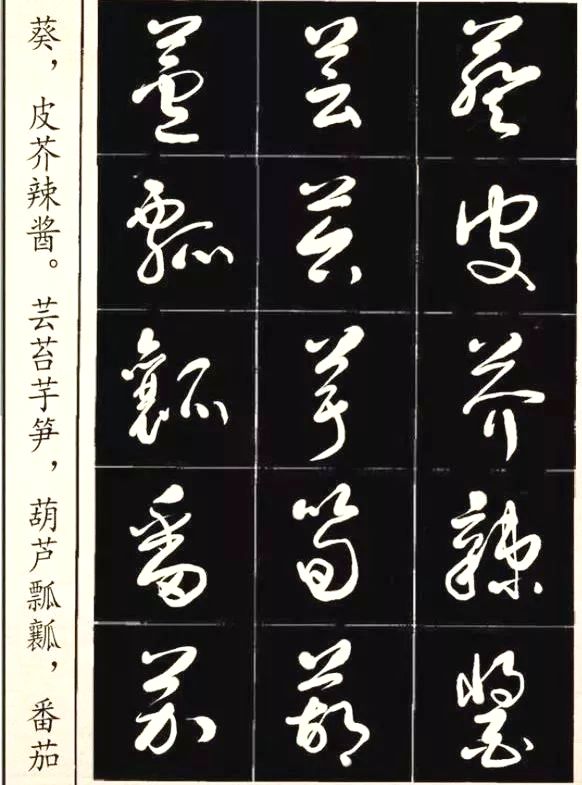 葵皮芥辣醬
芸苔芋筍葫
蘆瓢瓤番茄
葵，皮芥辣酱。芸苔芋笋，葫芦瓢瓤，番茄